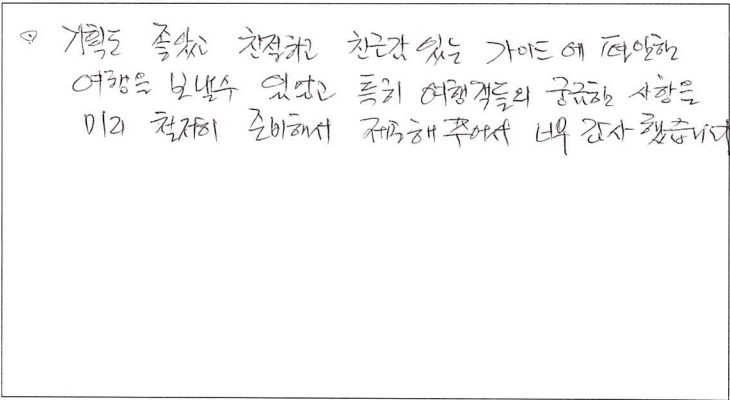 ⊙ 기획도 좋았고 친절하고 친근감 있는 가이드에 편안한
여행을 보낼수 있었고 특히 여행객들의 궁금한 사항을
미리 철저히 준비해서 제공해 주어서 너무 감사했습니다